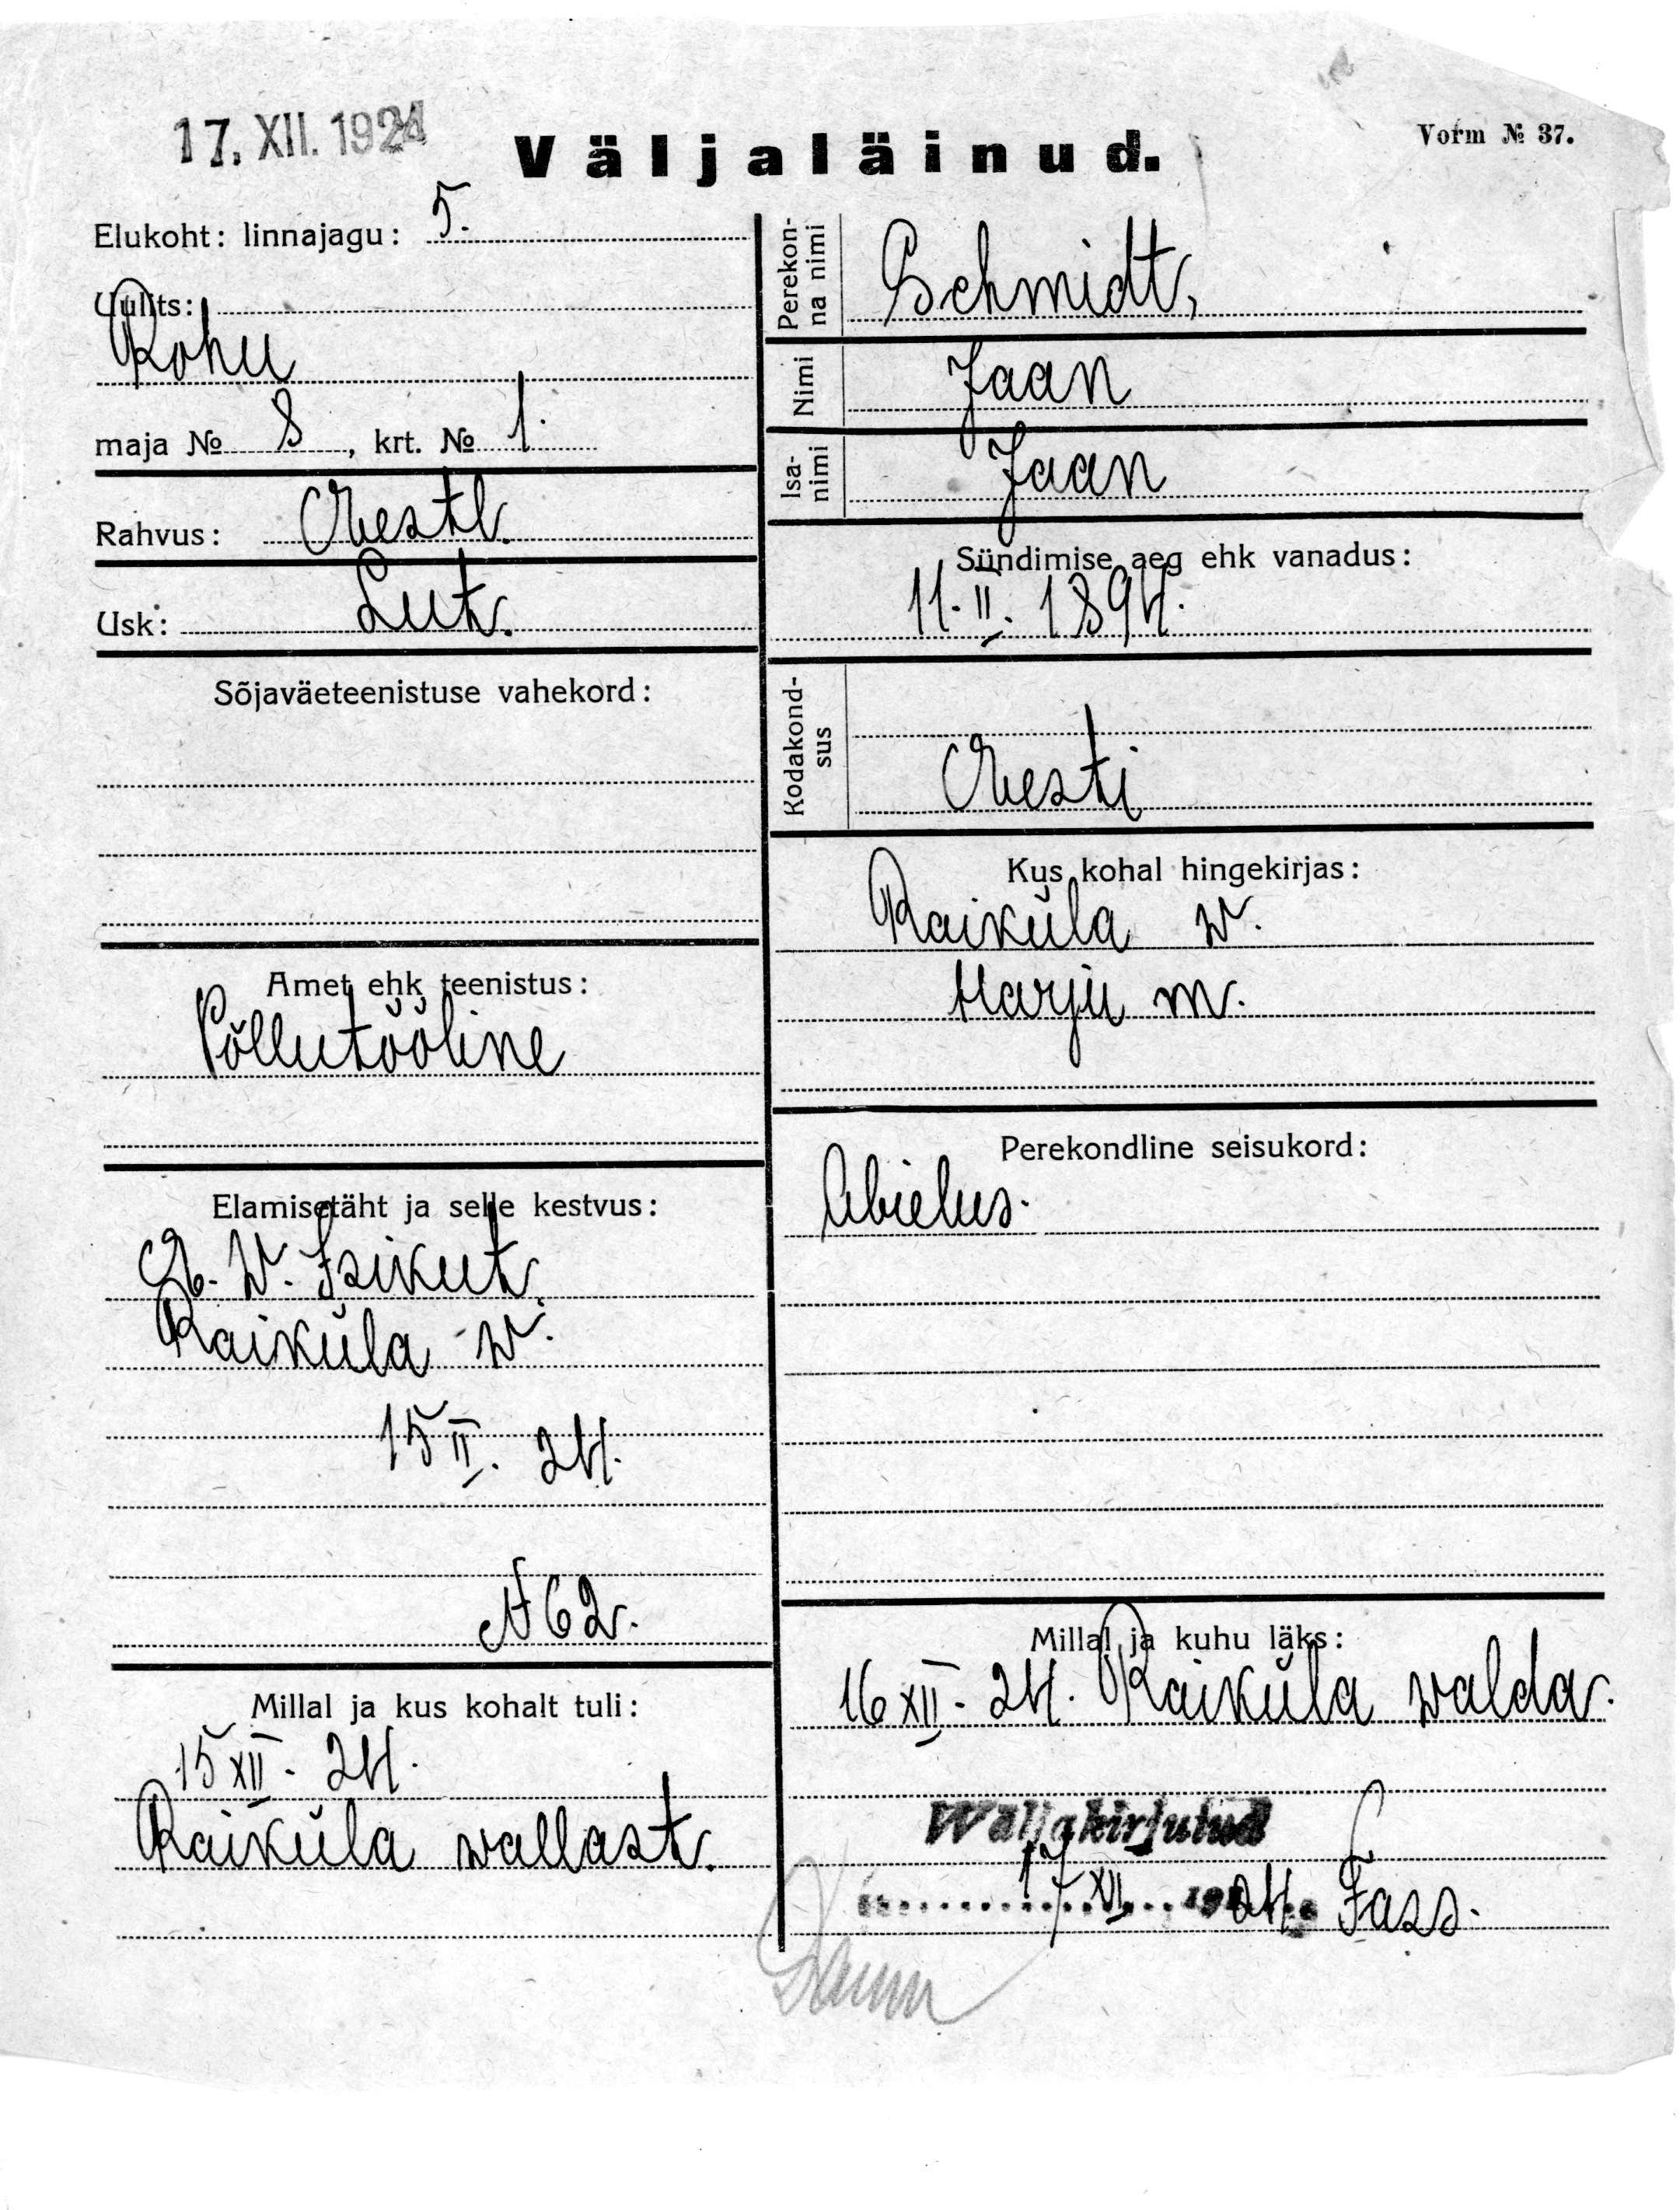 17. XII. 1924
Väljaläinud.
Vorm № 37.
Elukoht: linnajagu: 5.
Uulits:
Rohu
maja № 8, krt. № 1.
Rahvus: Eestl.
Usk: Lut.
Sõjaväeteenistuse vahekord:
Amet ehk teenistus:
Põllutööline
Elamisetäht ja selle kestvus:
W. Isikut.
Raiküla w.
15 II. 24.
№ 62.
Millal ja kus kohalt tuli:
15 XII. 24.
Raiküla wallast.
Perekonna nimi
Schmidt,
Nimi
Jaan
Isanimi
Jaan
Sündimise aeg ehk vanadus:
11. II. 1894.
Kodakondsus
Eesti
Kus kohal hingekirjas:
Raiküla w.
Harju m.
Perekondline seisukord:
Abielus.
Millal ja kuhu läks:
16 XII. 24. Raiküla walda.
Wäljakirjutud
17 XII 1924. Fass.